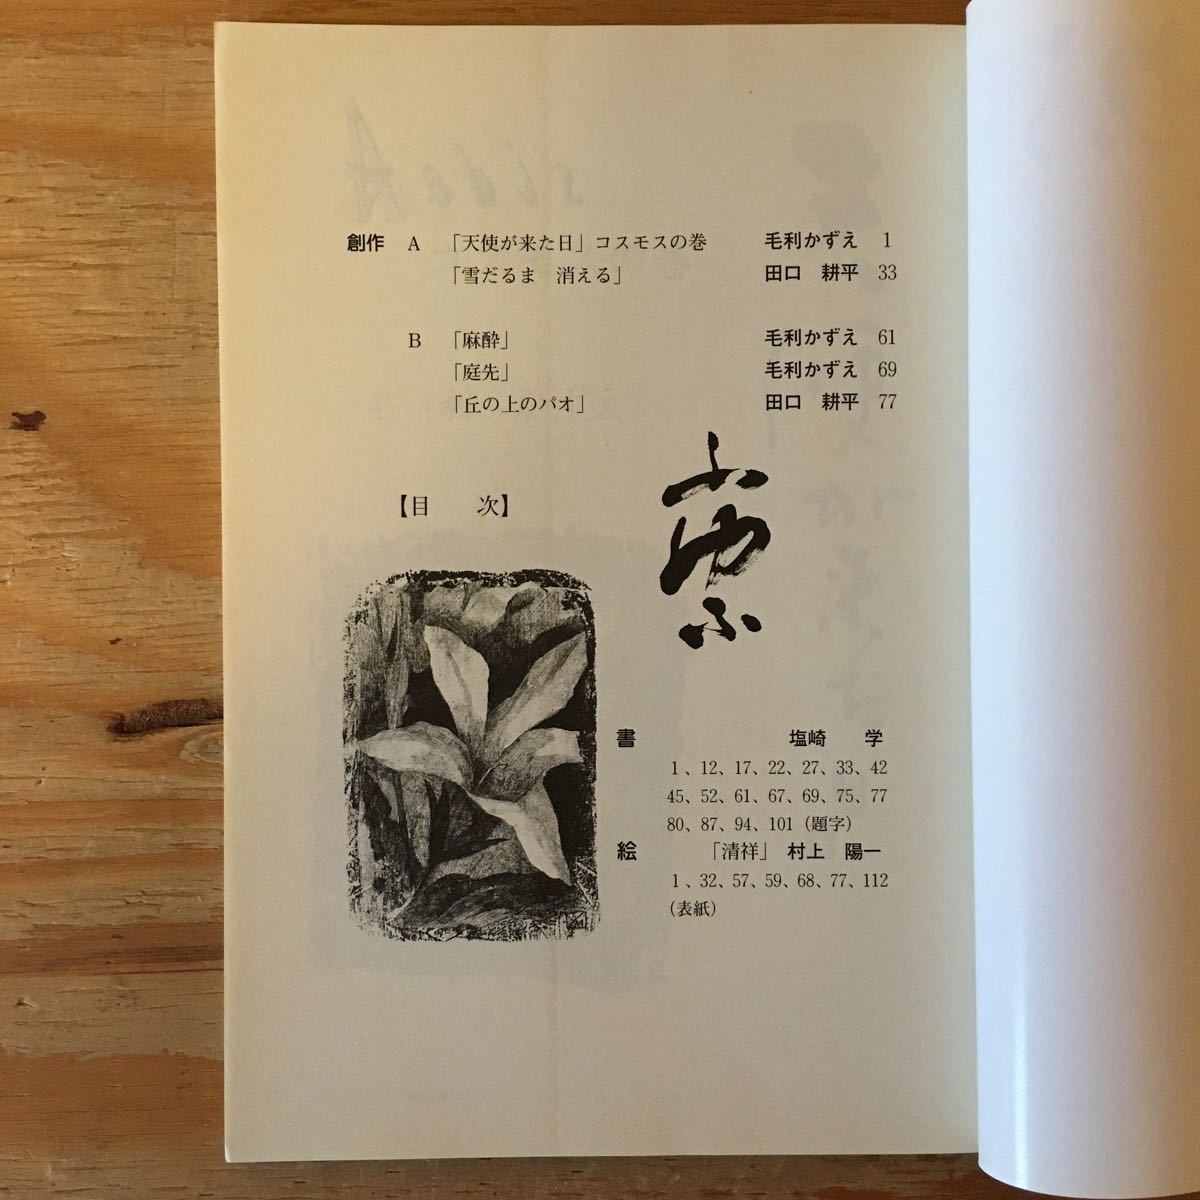 創作 A 「天使が来た日」コスモスの巻 毛利かずえ 1
「雪だるま 消える」 田口 耕平 33
B 「麻酔」 毛利かずえ 61
「庭先」 毛利かずえ 69
「丘の上のパオ」 田口 耕平 77
【目 次】
書 塩崎 学
1、12、17、22、27、33、42
45、52、61、67、69、75、77
80、87、94、101（題字）
絵 「清祥」 村上 陽一
1、32、57、59、68、77、112
（表紙）